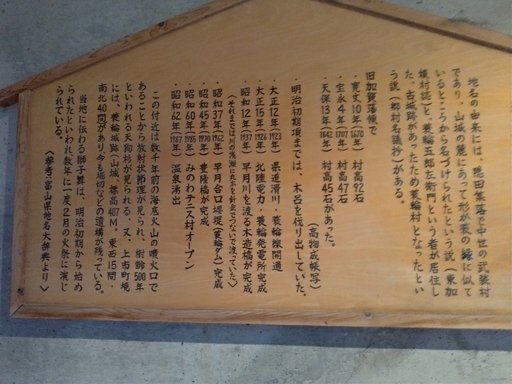 地名の由来には、隠田集落で中世の武装村
であり、山城の麓にあって形が蓑の緣に似て
いるところから名づけられたという説（東加
積村誌）と、蓑輪五郎左衛門という者が居住し
た、古城跡があったため蓑輪村となったとい
う説（郡村名義抄）がある。
旧加賀藩領で
・寛文10年（1670年）村高92石
・宝永4年（1707年）村高47石
・天保13年（1842年）村高45石があった。
（高物成帳写）
・明治初期頃までは、木呂を伐り出していた。
・大正12年（1923年）県道滑川・蓑輪線開通
・大正15年（1926年）北陸電力・蓑輪発電所完成
・昭和12年（1937年）早月川を渡る木造橋が完成
（それまでは川の浅瀬に丸木を針金でつないで渡っていた）
・昭和37年（1962年）早月合口堰堤（蓑輪ダム）完成
・昭和45年（1970年）蓑隆橋が完成
・昭和60年（1985年）みのわテニス村オープン
・昭和62年（1987年）温泉湧出
この付近は数千年前の海底火山の噴火口で
あることから放射状節理が見られ、樹齢500年
といわれる天狗杉が見られる。又、上市町境
には、蓑輪城跡（山城、標高407M、東西15間・
南北40間）があり今も堀切などの遺構が残っている。
当地に伝わる獅子舞は、明治初期から始め
られたといわれ数年に一度2月の火祭に演じ
られている。
〈参考：富山県地名大辞典より〉